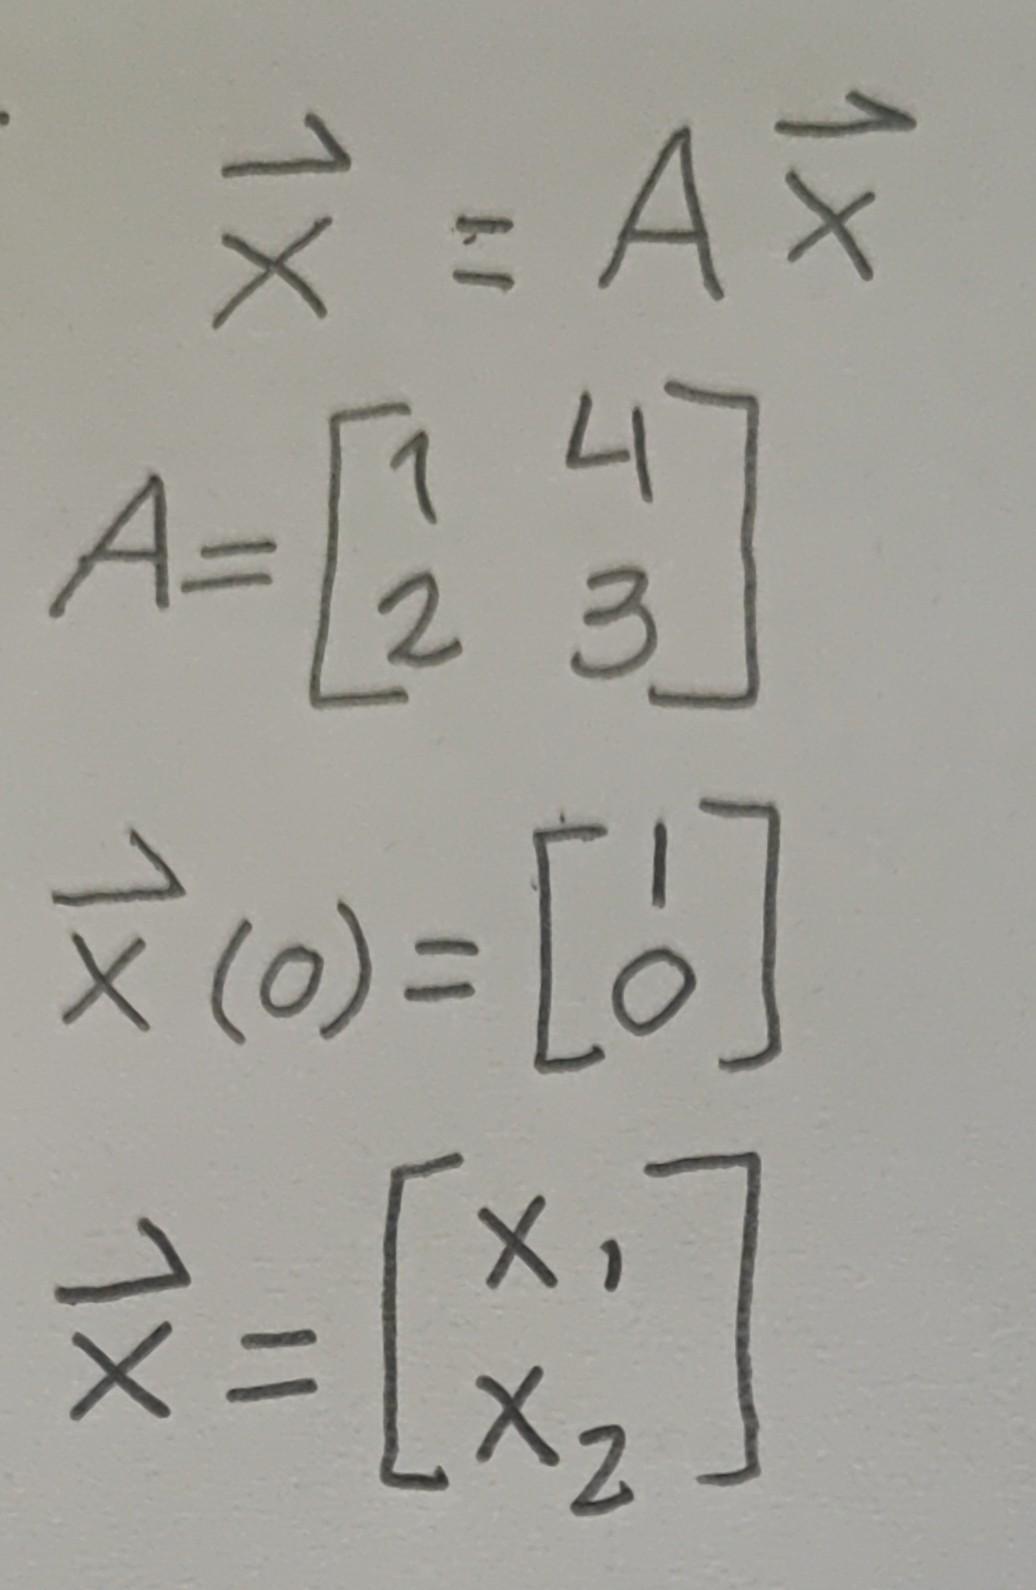 x⃗ = A x⃗
A = [1 4; 2 3]
x⃗ (0) = [1; 0]
x⃗ = [x₁; x₂]